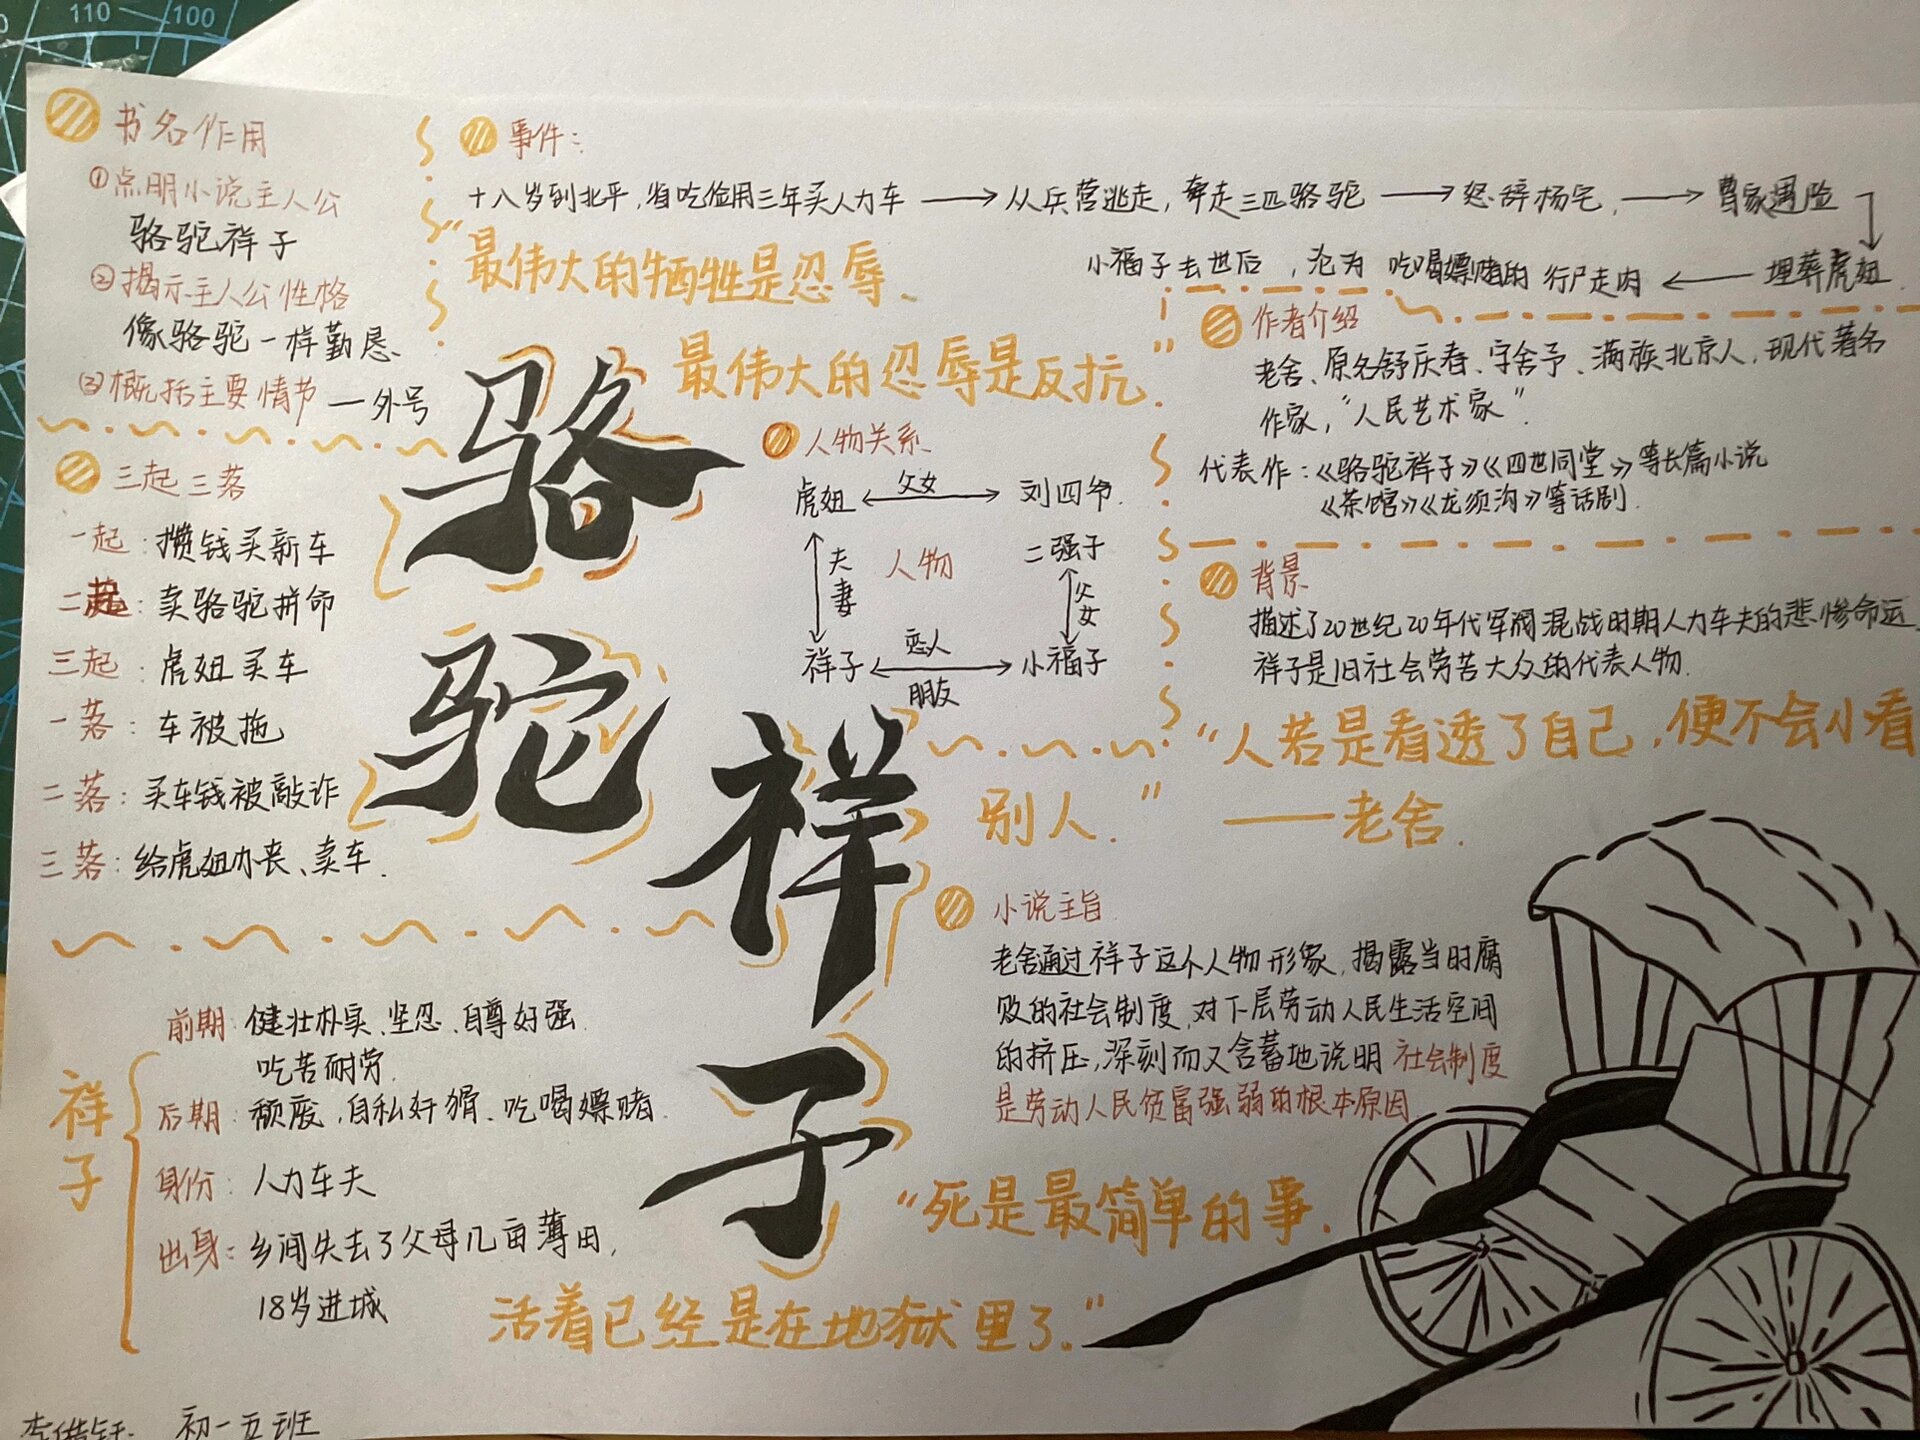 110
100
书名作用
①点明小说主人公
骆驼祥子
②揭示主人公性格
像骆驼一样勤恳、
③概括主要情节 — 外号
三起三落
一起：攒钱买新车
二起：卖骆驼拼命
三起：虎妞买车
一落：车被拖
二落：买车钱被敲诈
三落：给虎妞办丧、卖车.
事件：
十八岁到北平，省吃俭用三年买人力车 → 从兵营逃走，奔走三匹骆驼 → 怒辞杨宅， → 曹家遇险
小福子去世后，沦为 吃喝嫖赌的 行尸走肉 ← 埋葬虎妞.
“最伟大的牺牲是忍辱、
最伟大的忍辱是反抗.”
骆驼祥子
人物关系
虎妞 ↔ 父女 刘四爷.
夫妻
人物
二强子
父女
祥子 ↔ 恋人 小福子
朋友
作者介绍
老舍、原名舒庆春、字舍予、满族北京人，现代著名
作家，“人民艺术家”.
代表作：《骆驼祥子》《四世同堂》等长篇小说
《茶馆》《龙须沟》等话剧.
背景
描述了20世纪20年代军阀混战时期人力车夫的悲惨命运
祥子是旧社会劳苦大众的代表人物.
“人若是看透了自己，便不会小看
别人.” ——老舍.
小说主旨
老舍通过祥子这个人物形象，揭露当时腐
败的社会制度，对下层劳动人民生活空间
的挤压，深刻而又含蓄地说明 社会制度
是劳动人民贫富强弱的根本原因.
祥子
前期：健壮朴实、坚忍、自尊好强.
吃苦耐劳.
后期：颓废，自私奸猾、吃喝嫖赌.
身份：人力车夫
出身：乡间失去了父母几亩薄田，
18岁进城
“死是最简单的事.
活着已经是在地狱里了.”
初一五班